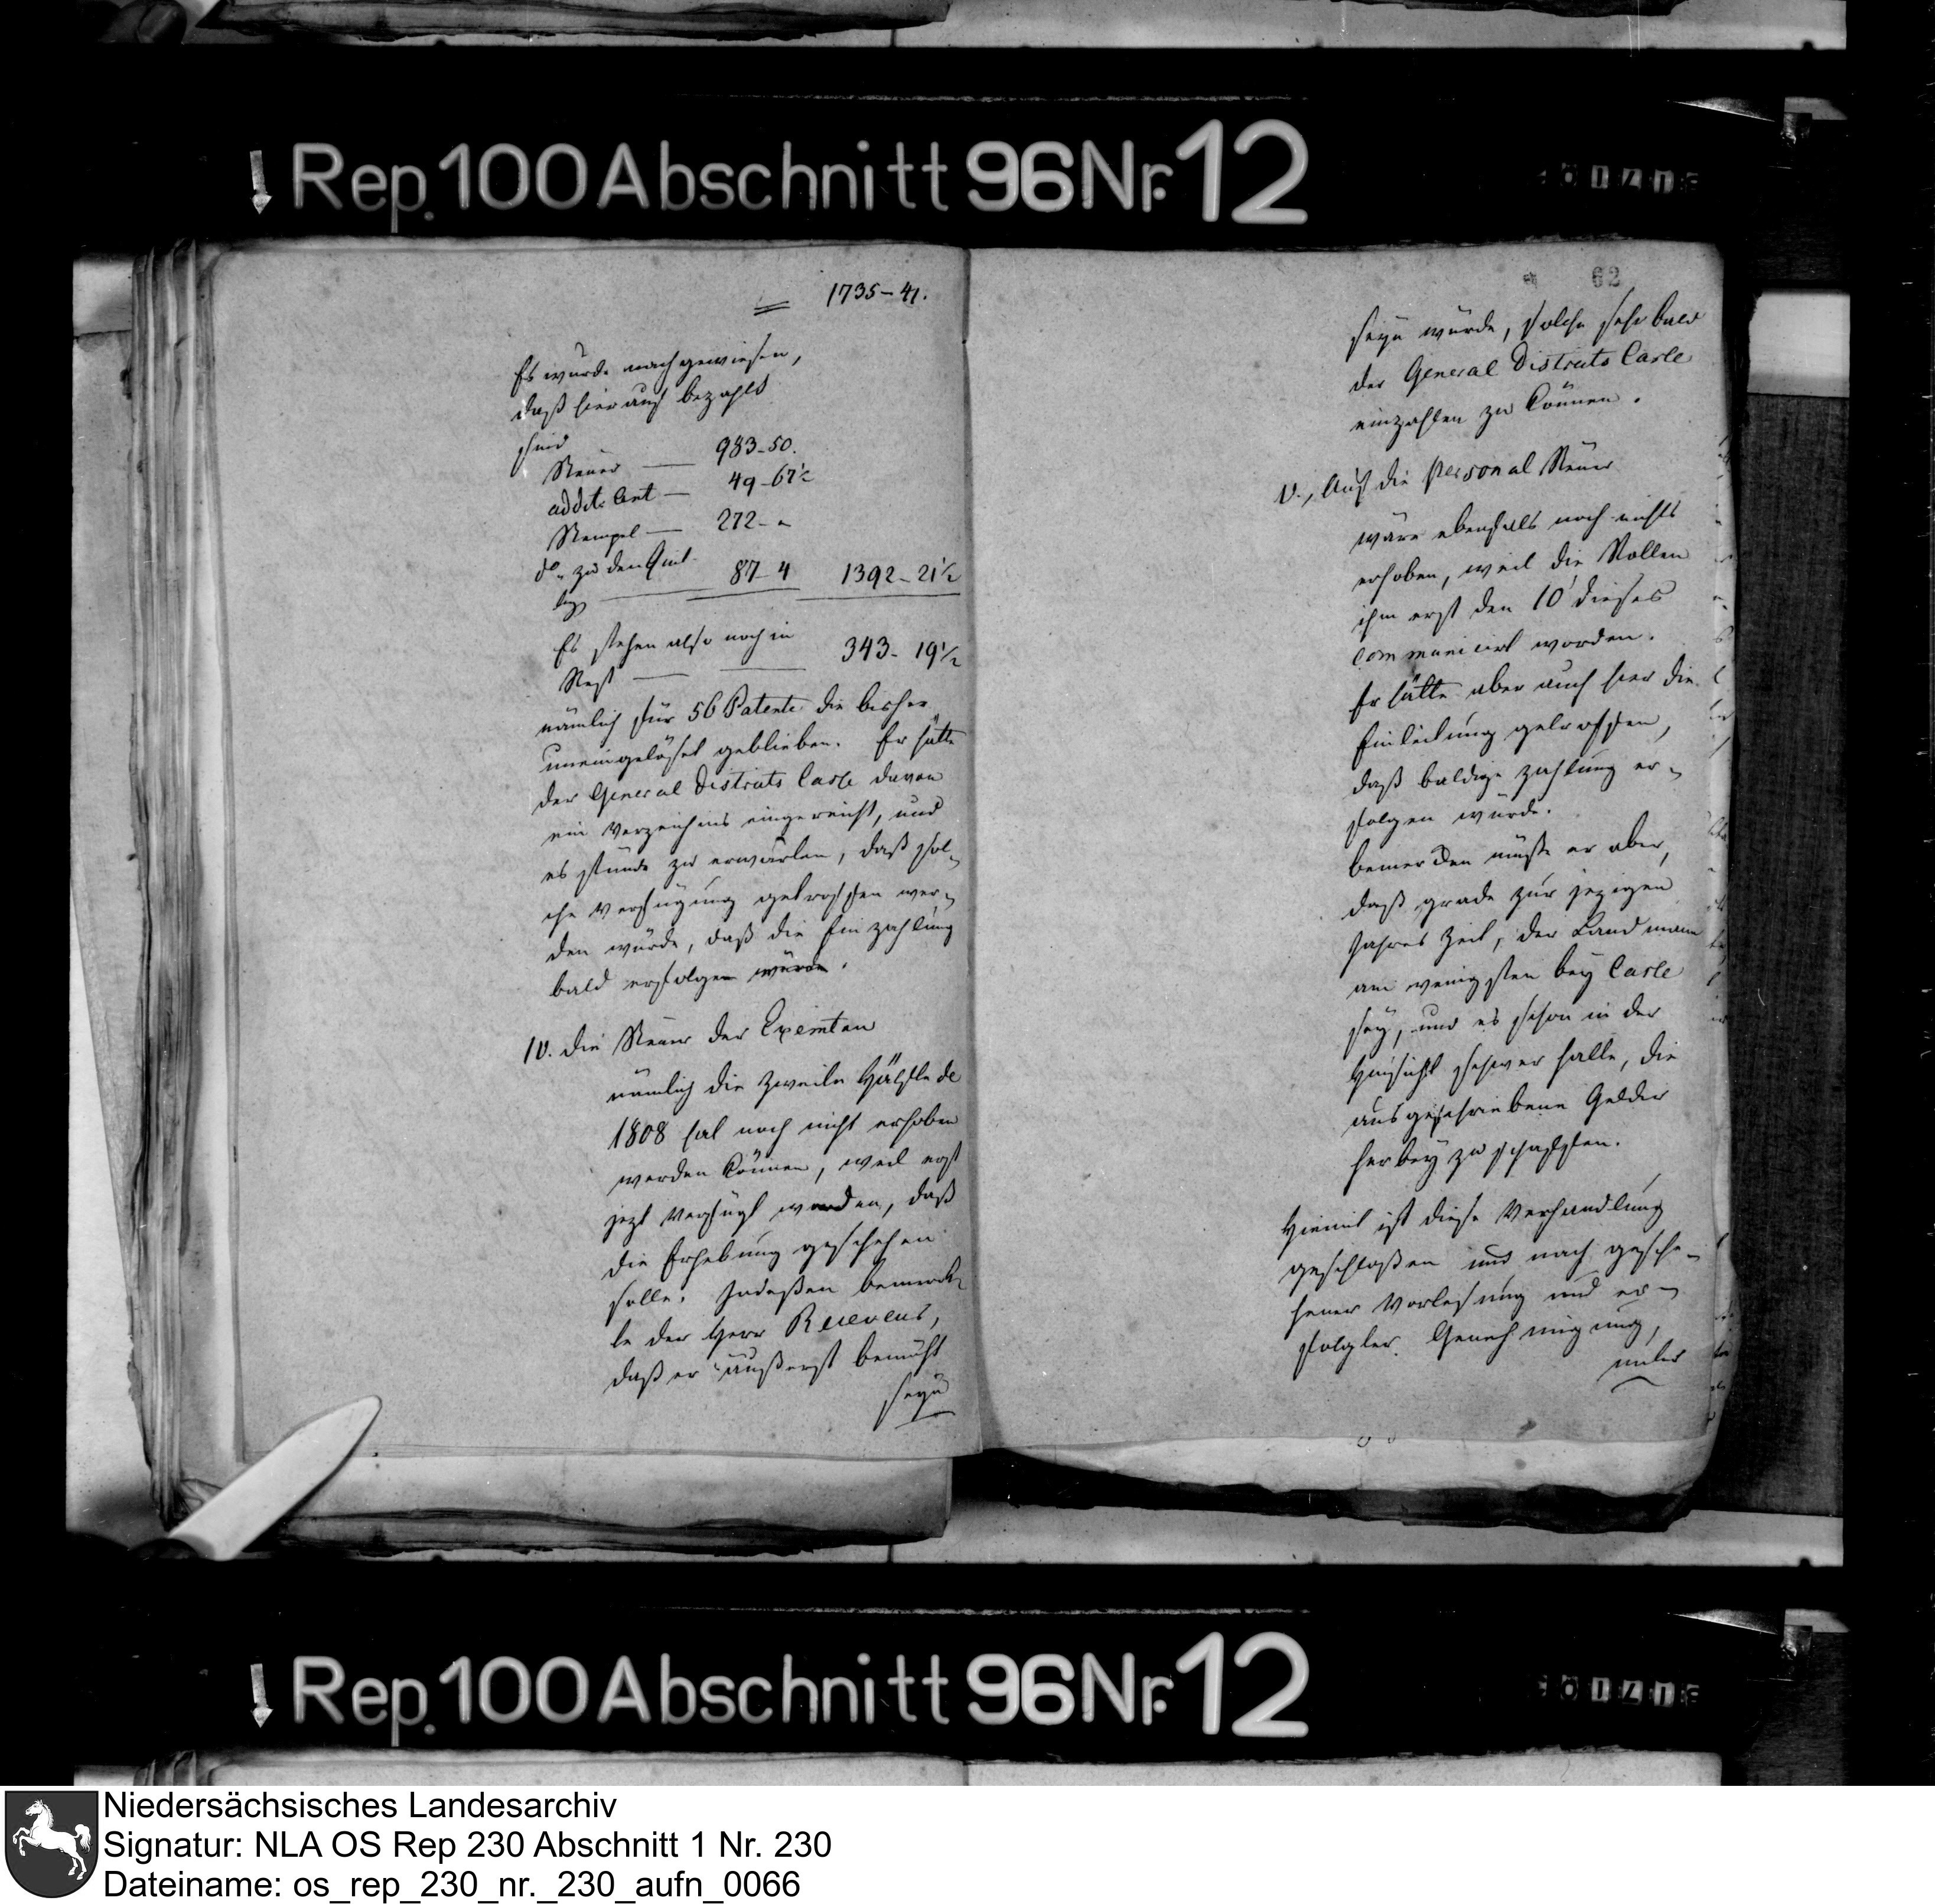 ↓ Rep. 100 Abschnitt 96 Nr. 12
1735-41.
Es wurde nachgewiesen,
daß hierauf bezahlt
sind
Steuer — 983-50.
addit. Cent — 49-67½
Stempel — 272-"
do. zu den Quit-
tgs — 87-4 1392-21½
Es stehen also noch in
Rest — 343-19½
nämlich für 56 Patente die bisher
uneingelöset geblieben. Er hätte
der General Districts Casse davon
ein Verzeichnis eingereicht, und
es stünde zu erwarten, daß sol-
che Verfügung getroffen wer-
den würde, daß die Einzahlung
bald erfolgen würde.
IV. die Steuer der Exemten
nämlich die zweite Hälfte de
1808 hat noch nicht erhoben
werden können, weil erst
jezt verfügt worden, daß
die Erhebung geschehen
solle. Indeßen bemerk-
te der Herr Receveur,
daß er äußerst bemüht
seyn
62
seyn würde, solche sehr bald
der General Districts Casse
einzahlen zu können.
V., Auf die Personal Steuer
wäre ebenfalls noch nichts
erhoben, weil die Rollen
ihm erst den 10 dieses
communicirt worden.
Er hätte aber auch hier die
Einleitung getroffen,
daß baldige Zahlung er-
folgen würde.
bemerken müße er aber,
daß grade zur jezigen
Jahres Zeit, der Landmann
am wenigsten bey Casse
sey, und es schon in der
Hinsicht schwer halte, die
ausgeschriebene Gelder
herbey zu schaffen.
Hiemit ist diese Verhandlung
geschloßen und nach gesche-
hener Vorlesung und er-
folgter Genehmigung,
unter
↓ Rep. 100 Abschnitt 96 Nr. 12
Niedersächsisches Landesarchiv
Signatur: NLA OS Rep 230 Abschnitt 1 Nr. 230
Dateiname: os_rep_230_nr._230_aufn_0066